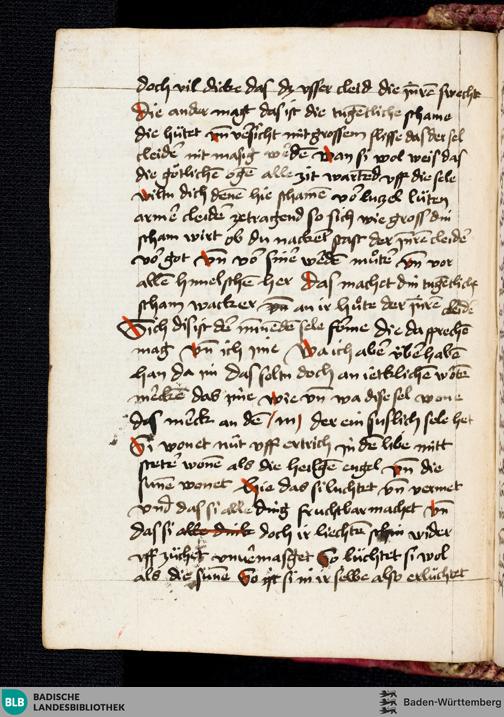 doch vil dicke das dz vsser cleid die jnre swecht
Die ander mag das ist die tugētliche schame
die hütet vn̄ versicht mit grossem flisse das der sel
cleider nit masig werdē wan si wol weis das
die götlichē ogē alle zit warted vff die sele
wiltu dich denē hie schamē vor lutzel lüten
armē cleider zetragend so sich wie gross din
scham wirt ob du nacket stast der jnrē cleider
vor got vn̄ vor siner werdē mutē vn̄ vor
allem himelschen her Das machet din tugētliche
scham wacker vn̄ an ir hute der jnrē cleider
Sich dis ist der minnēde sele forme die da sprechē
mag vn̄ ich jme Wa ich aber v̈ber habē
han da jm das soltu doch an ietklichen wortē
merkē das jme wie vn̄ wa dise sel wone
das merck an dem jm der ein suslich sele het
Si wonet nüt vff ertrich jn dē libe mitt
steter wonē als die heilgē engel vn̄ die
sunē wonet Wie das si luchtet vn̄ vermet
vnd das si alle ding fruchtbar machet vn̄
das si alle dink doch ir liechtē schin wider
vff zuhet vnuermasget So lüchtet si wol
als die sunē So ist si in ir selbe also erlüchtet
BLB
BADISCHE
LANDESBIBLIOTHEK
Baden-Württemberg